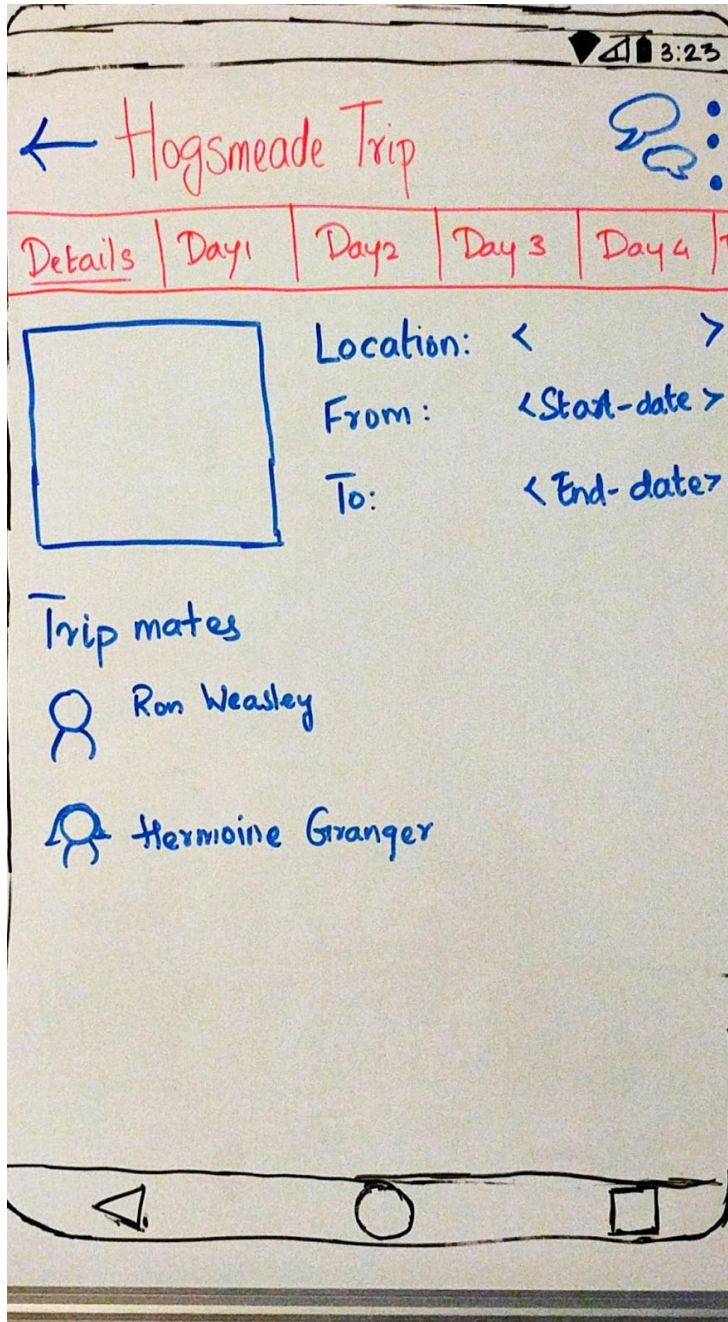 3:23
Hogsmeade Trip
Details Day1 Day2 Day 3 Day 4
Location: < >
From: <Start-date>
To: <End-date>
Trip mates
Ron Weasley
Hermoine Granger